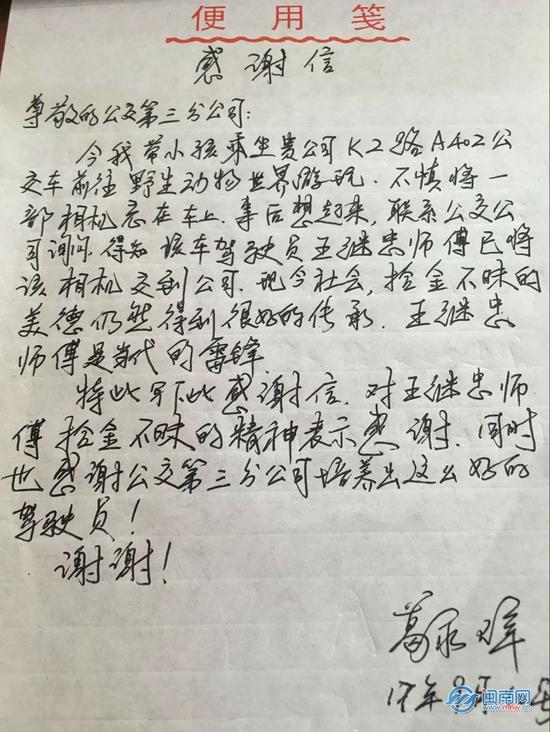 便用笺
感谢信
尊敬的公交第三分公司:
今我带小孩乘坐贵公司K2路A402公
交车前往野生动物世界游玩.不慎将一
部相机忘在车上.事后想起来,联系公交公
司询问.得知该车驾驶员王继忠师傅已将
该相机交到公司.现今社会,拾金不昧的
美德仍然得到很好的传承.王继忠
师傅是当代的雷锋.
特此写下此感谢信.对王继忠师
傅拾金不昧的精神表示感谢.同时
也感谢公交第三分公司培养出这么好的
驾驶员!
谢谢!
葛
17年
闽南网
www.mnw.cn